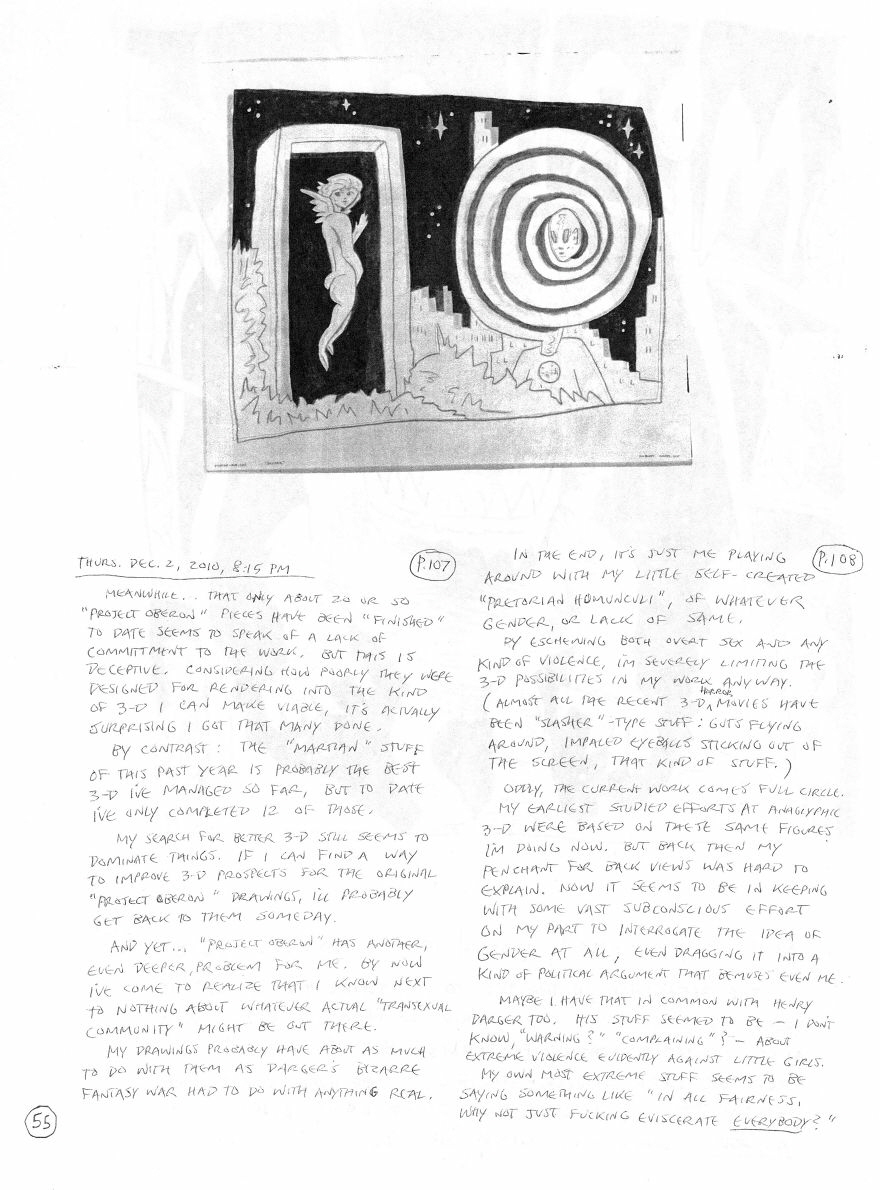 THURS. DEC. 2, 2010, 8:15 PM
P.107
MEANWHILE.. THAT ONLY ABOUT 20 OR SO
"PROJECT OBERON" PIECES HAVE BEEN "FINISHED"
TO DATE SEEMS TO SPEAK OF A LACK OF
COMMITTMENT TO THE WORK. BUT THIS IS
DECEPTIVE. CONSIDERING HOW POORLY THEY WERE
DESIGNED FOR RENDERING INTO THE KIND
OF 3-D I CAN MAKE VIABLE, IT'S ACTUALLY
SURPRISING I GOT THAT MANY DONE.
BY CONTRAST: THE "MARTIAN" STUFF
OF THIS PAST YEAR IS PROBABLY THE BEST
3-D I'VE MANAGED SO FAR, BUT TO DATE
I'VE ONLY COMPLETED 12 OF THOSE.
MY SEARCH FOR BETTER 3-D STILL SEEMS TO
DOMINATE THINGS. IF I CAN FIND A WAY
TO IMPROVE 3-D PROSPECTS FOR THE ORIGINAL
"PROJECT OBERON" DRAWINGS, I'LL PROBABLY
GET BACK TO THEM SOMEDAY.
AND YET... "PROJECT OBERON" HAS ANOTHER,
EVEN DEEPER, PROBLEM FOR ME. BY NOW
I'VE COME TO REALIZE THAT I KNOW NEXT
TO NOTHING ABOUT WHATEVER ACTUAL "TRANSEXUAL
COMMUNITY" MIGHT BE OUT THERE.
MY DRAWINGS PROBABLY HAVE ABOUT AS MUCH
TO DO WITH THEM AS DARGER'S BIZARRE
FANTASY WAR HAD TO DO WITH ANYTHING REAL.
55
P.108
IN THE END, IT'S JUST ME PLAYING
AROUND WITH MY LITTLE SELF-CREATED
"PRETORIAN HOMUNCULI", OF WHATEVER
GENDER, OR LACK OF SAME.
BY ESCHEWING BOTH OVERT SEX AND ANY
KIND OF VIOLENCE, I'M SEVERELY LIMITING THE
3-D POSSIBILITIES IN MY WORK ANYWAY.
(ALMOST ALL THE RECENT 3-D HORROR MOVIES HAVE
BEEN "SLASHER"-TYPE STUFF: GUTS FLYING
AROUND, IMPALED EYEBALLS STICKING OUT OF
THE SCREEN, THAT KIND OF STUFF.)
ODDLY, THE CURRENT WORK COMES FULL CIRCLE.
MY EARLIEST STUDIED EFFORTS AT ANAGLYPHIC
3-D WERE BASED ON THESE SAME FIGURES
I'M DOING NOW. BUT BACK THEN MY
PENCHANT FOR BACK VIEWS WAS HARD TO
EXPLAIN. NOW IT SEEMS TO BE IN KEEPING
WITH SOME VAST SUBCONSCIOUS EFFORT
ON MY PART TO INTERROGATE THE IDEA OF
GENDER AT ALL, EVEN DRAGGING IT INTO A
KIND OF POLITICAL ARGUMENT THAT BEMUSES EVEN ME.
MAYBE I HAVE THAT IN COMMON WITH HENRY
DARGER TOO. HIS STUFF SEEMED TO BE — I DON'T
KNOW, "WARNING?" "COMPLAINING"? — ABOUT
EXTREME VIOLENCE EVIDENTLY AGAINST LITTLE GIRLS.
MY OWN MOST EXTREME STUFF SEEMS TO BE
SAYING SOMETHING LIKE "IN ALL FAIRNESS,
WHY NOT JUST FUCKING EVISCERATE EVERYBODY?"